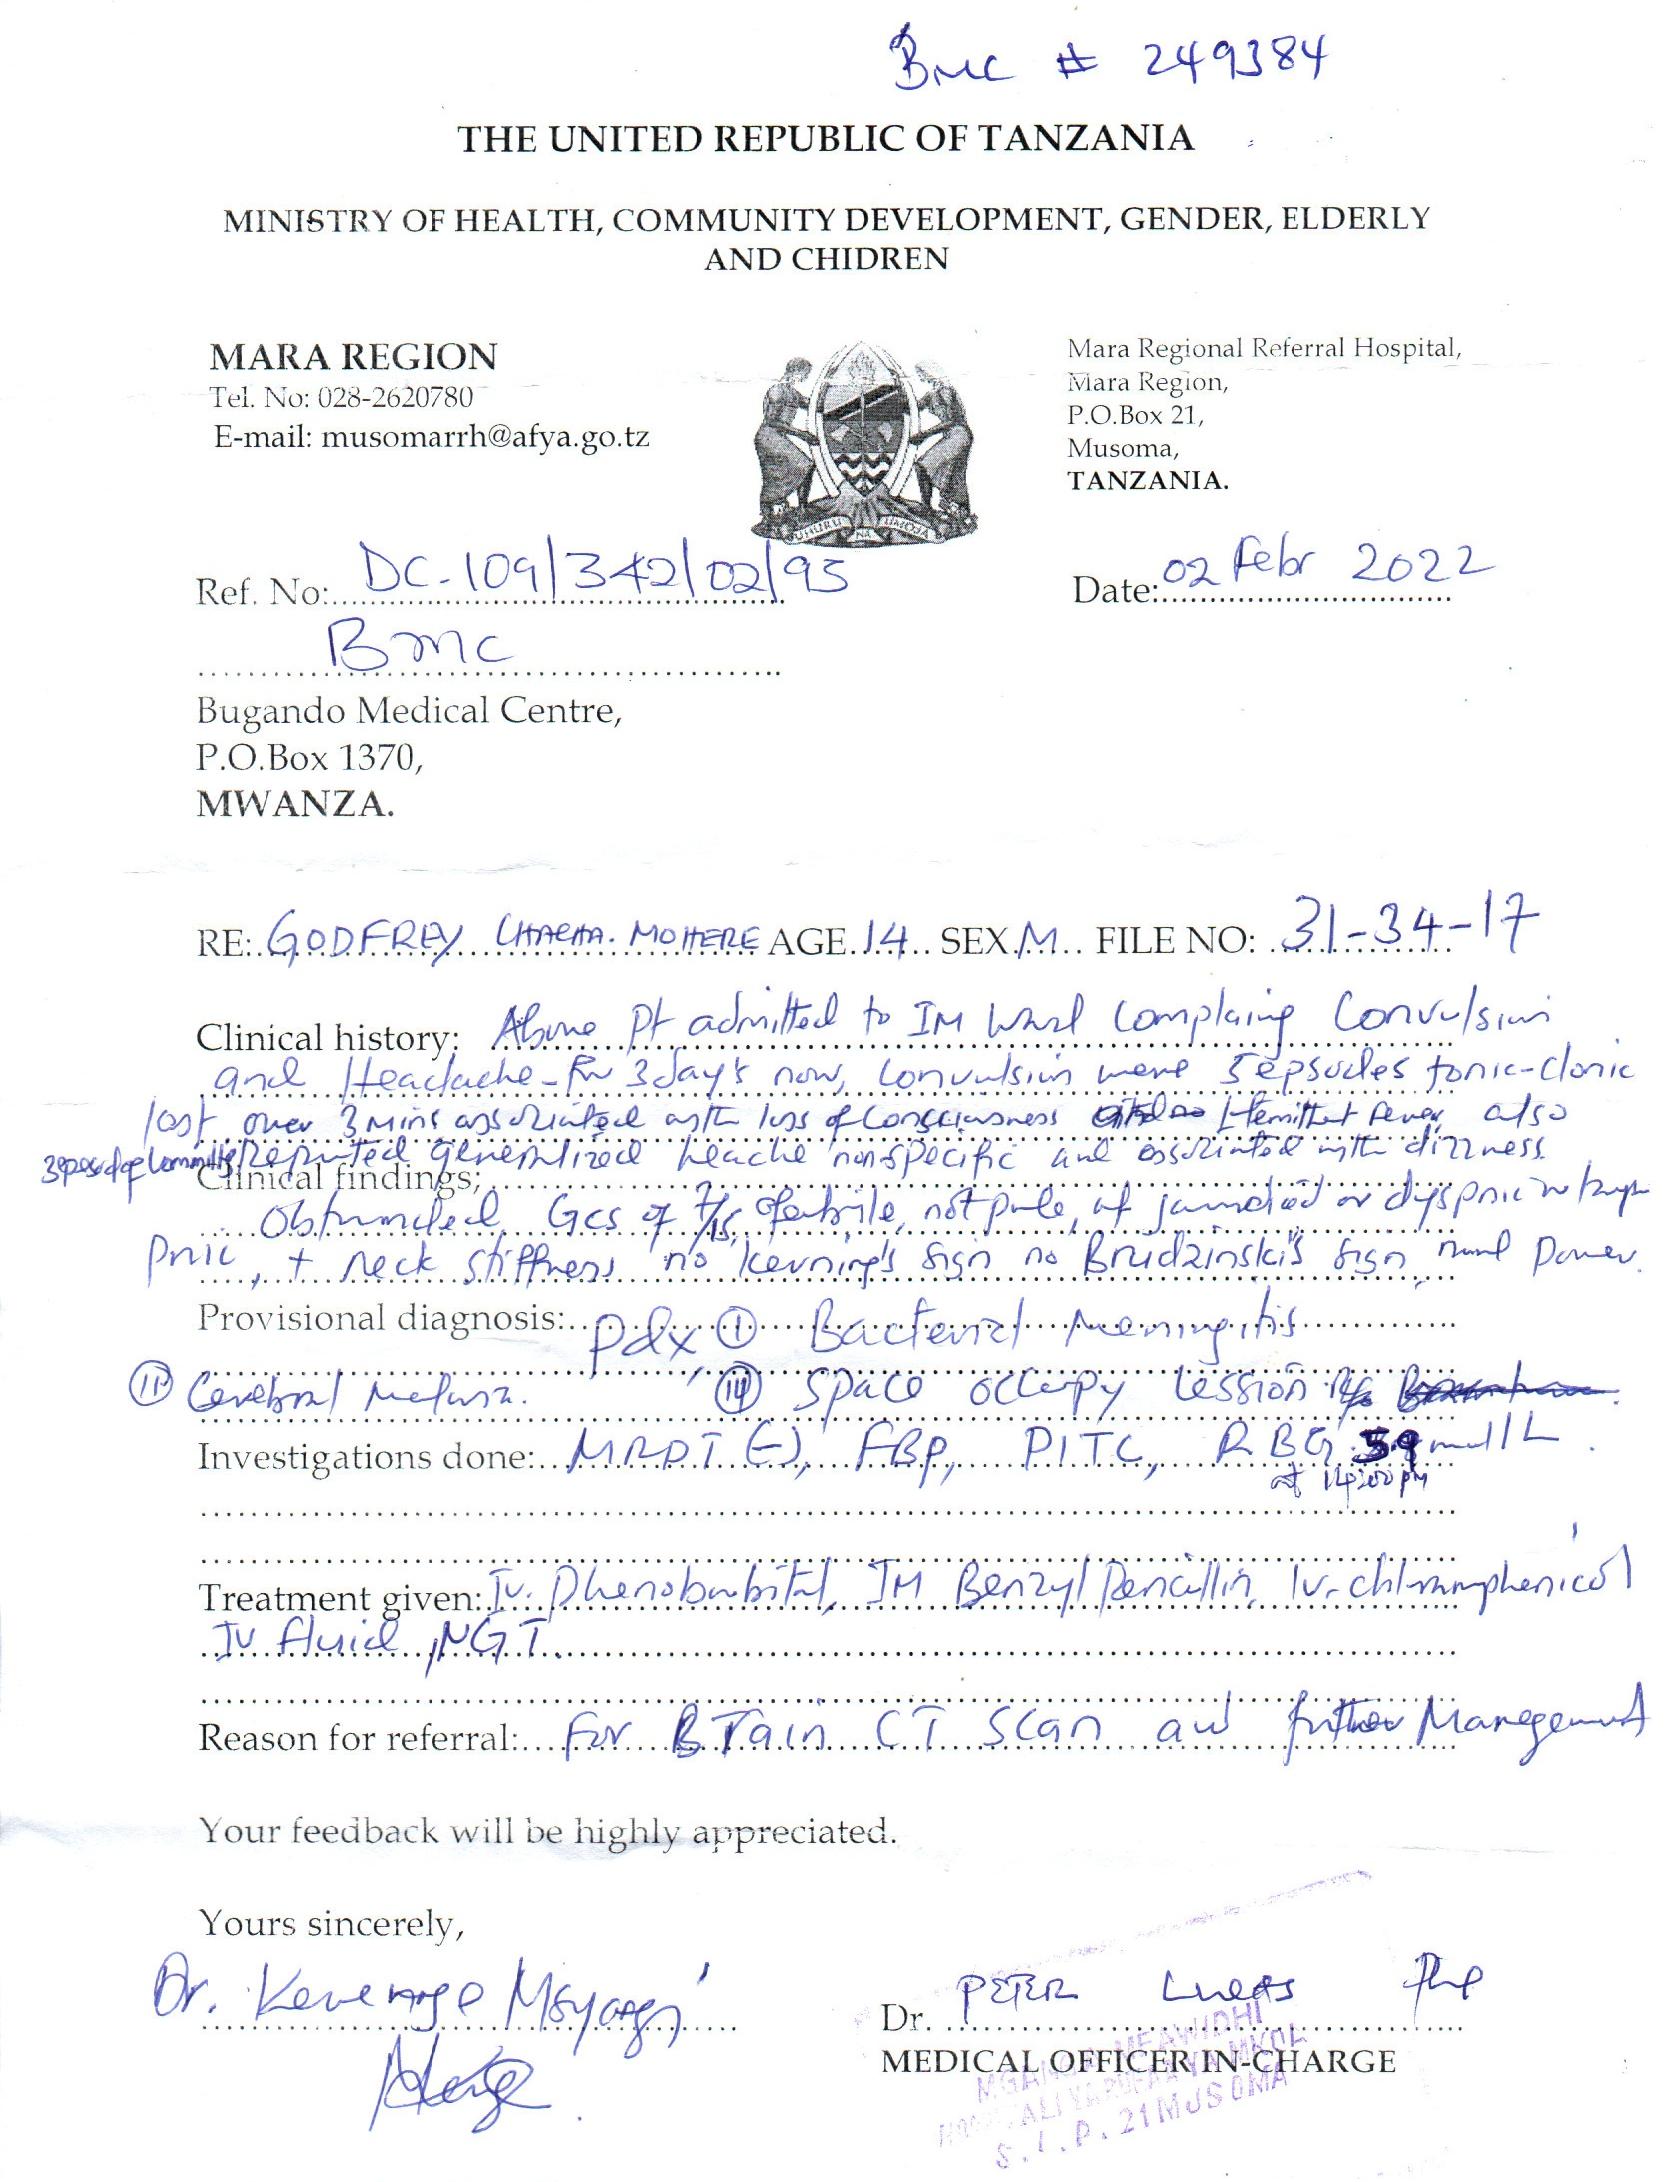 BMC # 249384
THE UNITED REPUBLIC OF TANZANIA
MINISTRY OF HEALTH, COMMUNITY DEVELOPMENT, GENDER, ELDERLY
AND CHIDREN
MARA REGION
Tel. No: 028-2620780
E-mail: musomarrh@afya.go.tz
Mara Regional Referral Hospital,
Mara Region,
P.O.Box 21,
Musoma,
TANZANIA.
UHURU NA UMOJA
Ref. No: DC-109/342/02/95
Date: 02 Febr 2022
BMC
Bugando Medical Centre,
P.O.Box 1370,
MWANZA.
RE: GODFREY CHACHA MOHERE AGE 14 SEX M FILE NO: 31-34-17
Clinical history: Above pt admitted to IM Ward Complaing Convulsion
and Headache - for 3 day's now, Convulsion were 5 epsodes tonic-clonic
last over 3 mins associated with loss of consciousness Itemittent fever, also
Reported generalized heache nonspecific and associated with dizzness.
Clinical findings;
Obtunded, GCS of 7/15, afebrile, not pale, jaundied or dyspnic
pnic, + neck stiffness no kerning's sign no Brudzinski's sign, power.
Provisional diagnosis: pdx ① Bacterial Meningitis
② Cerebral Malaria. Space occupy Lession
Investigations done: MRDT (-), FBP, PITC, RBG 5.9 mmol/L.
at 14:00 pm
Treatment given: Iv. Phenobarbital, IM Benzyl Pencillin, Iv. chloramphenicol
Iv fluid, NGT.
Reason for referral: For Brain CT Scan and further Management
Your feedback will be highly appreciated.
Yours sincerely,
Dr.
Dr. PETER Lucas
MEDICAL OFFICER IN-CHARGE
MGANGA MFAWIDHI
S.L.P. 21 MUSOMA